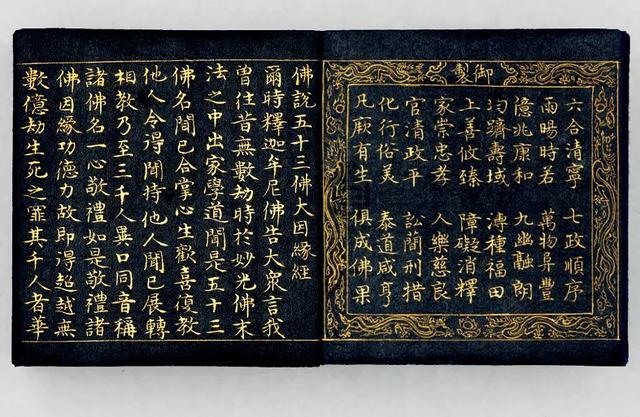 御製
六合清寧 七政順序
雨暘時若 萬物阜豐
億兆康和 九幽融朗
均躋壽域 溥種福田
上善攸臻 障礙消釋
家崇忠孝 人樂慈良
官清政平 訟簡刑措
化行俗美 泰道咸亨
凡厥有生 俱成佛果
佛說五十三佛大因緣經
爾時釋迦牟尼佛告大衆言我
曾往昔無數劫時於妙光佛末
法之中出家學道聞是五十三
佛名聞已合掌心生歡喜復教
他人令得聞持他人聞已展轉
相教乃至三千人異口同音稱
諸佛名一心敬禮如是敬禮諸
佛因緣功德力故即得超越無
數億劫生死之罪其千人者華